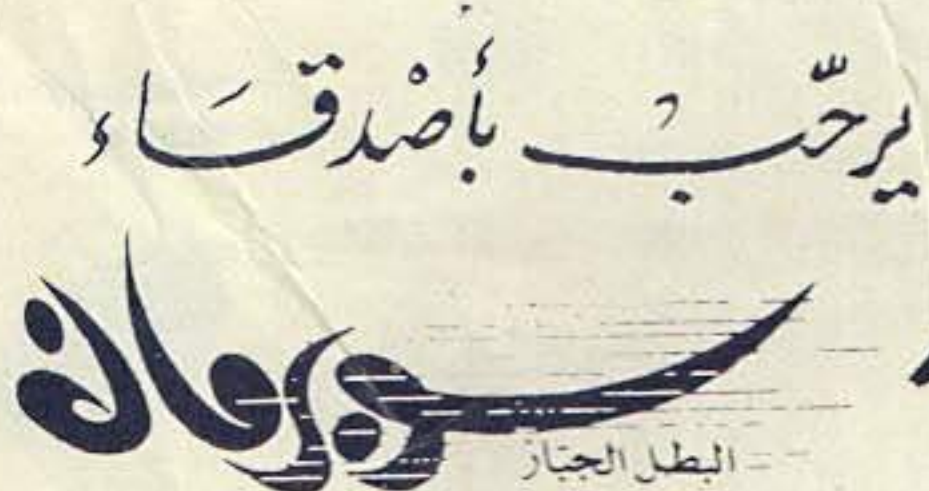 يرحّب بأصْدقَاء
سوبرمان
البطل الجبّار